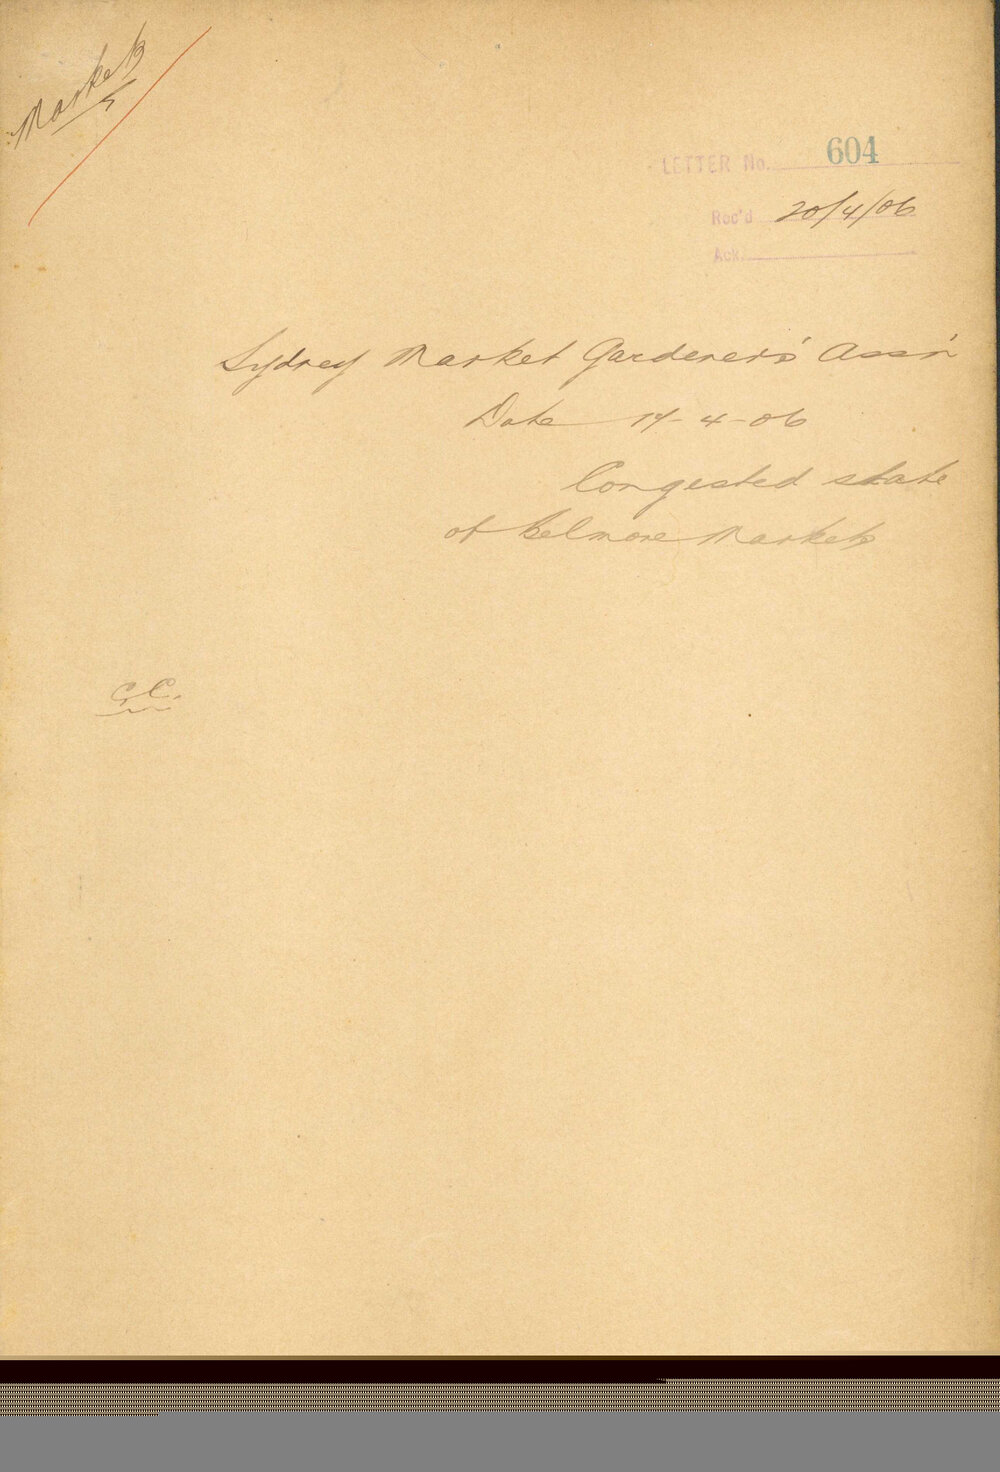 Markets
LETTER No. 604
Rec'd 20/4/06
Ack.
Sydney Market Gardeners' Ass'n
Date 17-4-06
Congested state
of Belmore Markets
C.C.